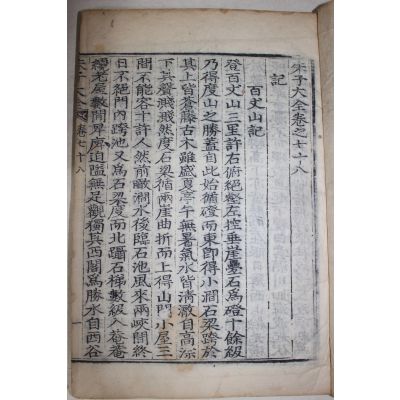 朱子大全卷之七十八
記
百丈山記
登百丈山三里許右俯絕壑左控垂崖疊石爲磴十餘級
乃得度山之勝蓋自此始循磴而東即得小澗石梁跨於
其上皆蒼藤古木雖盛夏亭午無暑氣水皆淸澈自高淙
下其聲濺濺然度石梁循兩崖曲折而上得山門小屋三
間不能容十許人然前瞰澗水後臨石池風來兩峽間終
日不絕門內跨池又爲石梁度而北躡石梯數級入菴菴
纔老屋數間卑庳迫隘無足觀獨其西閣爲勝水自西谷
朱子大全 卷七十八